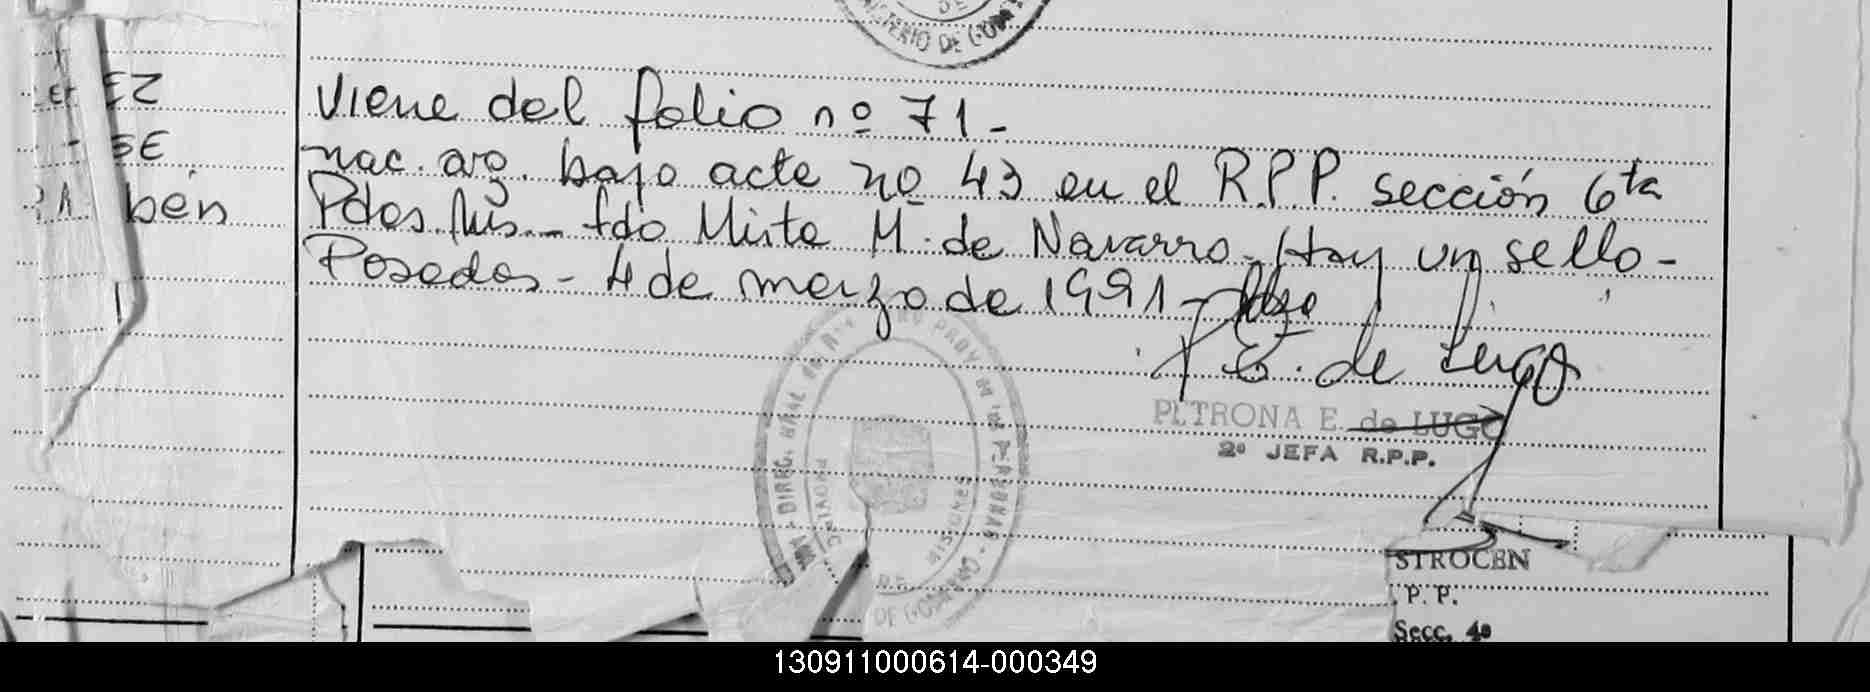 MINISTERIO DE GOB
EZ
SE
bén
Viene del folio nº 71-
nac. arg. bajo acta nº 43 en el R.P.P. sección 6ta
Pdas. Mis. - fdo Mirta M. de Navarro - Hay un sello -
Posadas - 4 de marzo de 1991 -
P E. de Lugo
PETRONA E. de LUGO
2º JEFA R.P.P.
DIREC. GRAL
PROV
MISIONES
DE GOB
STROCEN
P. P.
Secc. 4ª
130911000614-000349